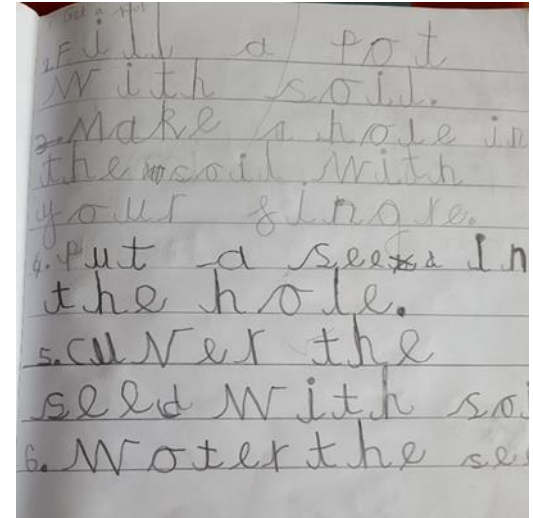 1. Get a pot
2. Fill a pot
with soil.
3. Make a hole in
the soil with
your fingre.
4. Put a seed in
the hole.
5. Cuver the
seed with soi
6. Woter the se